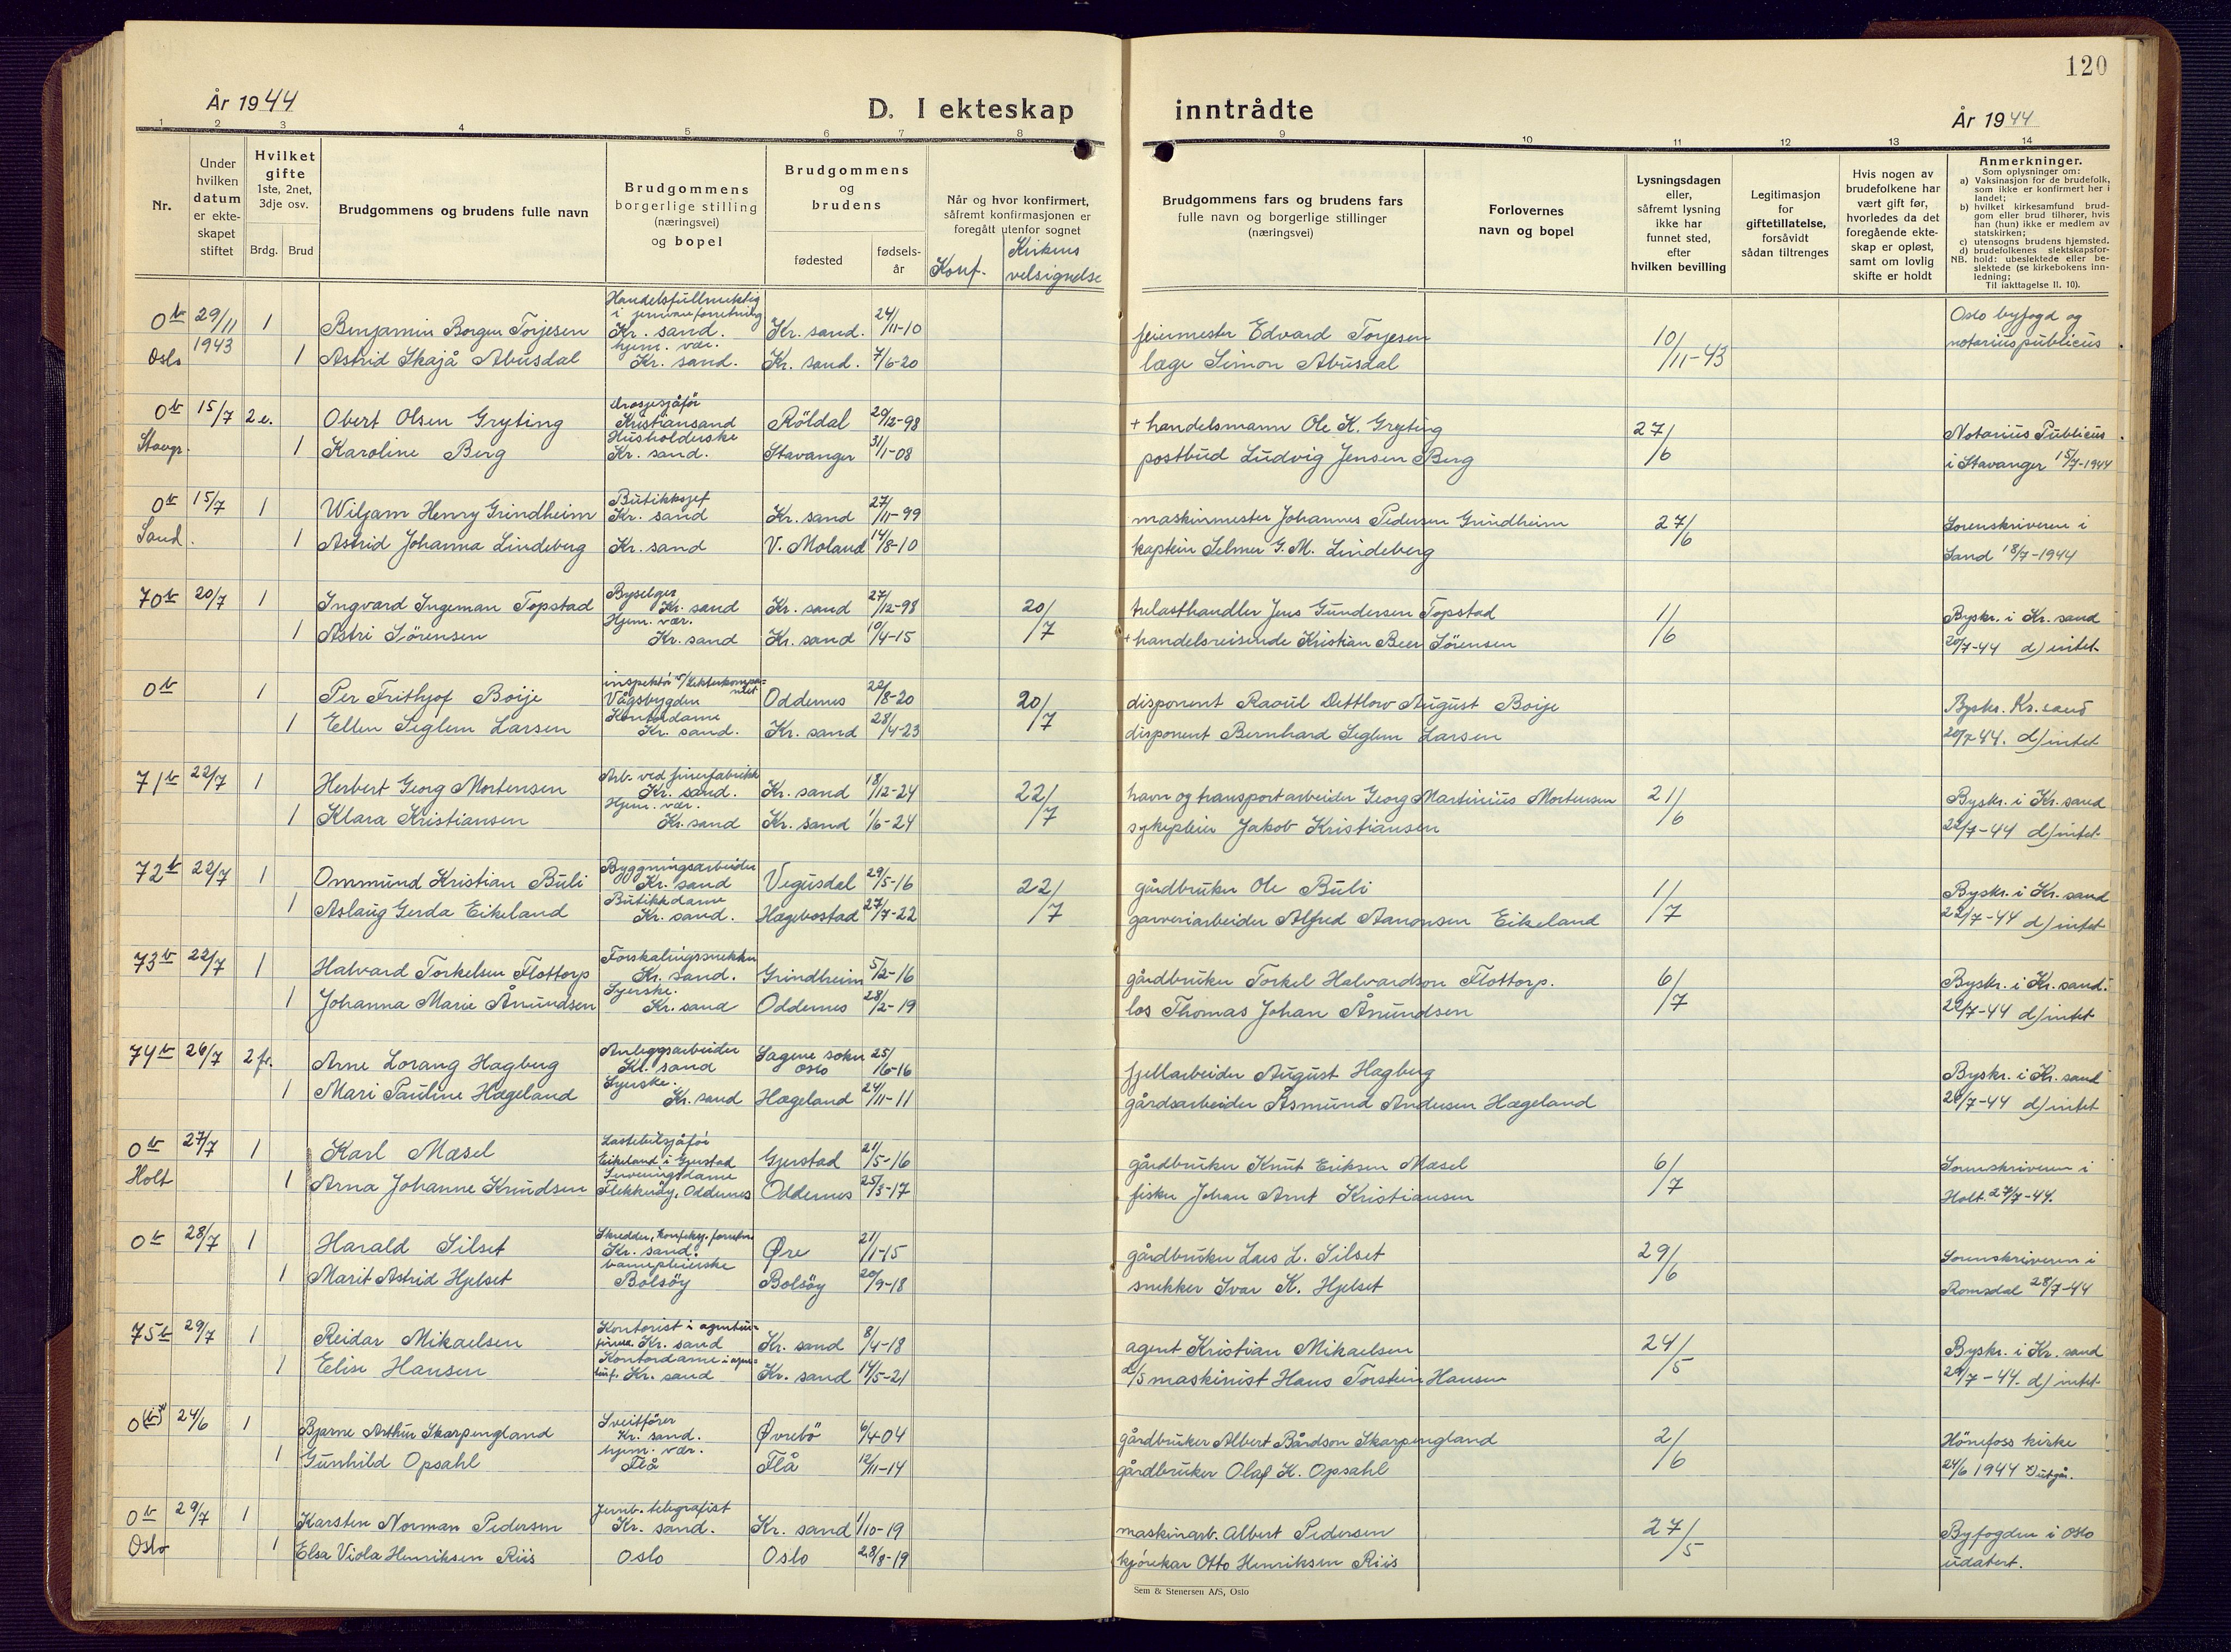 120
År 1944
D. I ekteskap
inntrådte
År 1944
1 2 3 4 5 6 7 8 9 10 11 12 13 14
Nr.
Under
hvilken
datum
er ekte-
skapet
stiftet
Hvilket
gifte
1ste, 2net,
3dje osv.
Brdg. Brud
Brudgommens og brudens fulle navn
Brudgommens
borgerlige stilling
(næringsvei)
og bopel
Brudgommens
og
brudens
fødested
fødsels-
år
Når og hvor konfirmert,
såfremt konfirmasjonen er
foregått utenfor sognet
Konf.
Kirkens
velsignelse
Brudgommens fars og brudens fars
fulle navn og borgerlige stillinger
(næringsvei)
Forlovernes
navn og bopel
Lysningsdagen
eller,
såfremt lysning
ikke har
funnet sted,
efter
hvilken bevilling
Legitimasjon
for
giftetillatelse,
forsåvidt
sådan tiltrenges
Hvis nogen av
brudefolkene har
vært gift før,
hvorledes da det
foregående ekte-
skap er opløst,
samt om lovlig
skifte er holdt
Anmerkninger.
Som oplysninger om:
a) Vaksinasjon for de brudefolk,
som ikke er konfirmert her i
landet;
b) hvilket kirkesamfund brud-
gom eller brud tilhører, hvis
han (hun) ikke er medlem av
statskirken;
c) utensogns brudens hjemsted.
d) brudefolkenes slektskapsfor-
NB. hold: ubeslektede eller be-
slektede (se kirkebokens inn-
ledning;
Til iakttagelse II. 10).
Handelsfullmektig
i jernvareforretning
0 b 29/11 1 Benjamin Borgen Torjesen Kr. sand. Kr. sand. 24/11-10 feiermester Edvard Torjesen 10/11-43 Oslo byfogd og
1943 hjem. vær. notarius publicus
Oslo 1 Astrid Skajå Abusdal Kr. sand. Kr. sand. 7/6-20 læge Simon Abusdal
Drosjesjåfør
0 b 15/7 2 e. Obert Olsen Gryting Kristiansand Röldal 29/12-98 + handelsmann Ole K. Gryting 27/6 Notarius Publicus
Husholderske
Stavgr. 1 Karoline Berg Kr. sand. Stavanger 31/1-08 postbud Ludvig Jensen Berg i Stavanger 15/7-1944
Butikksjef
0 b 15/7 1 Wiljam Henry Grindheim Kr. sand Kr. sand 27/11-99 maskinmester Johannes Pedersen Grindheim 27/6 Sorenskriveren i
Sand. 1 Astrid Johanna Lindeberg Kr. sand V. Moland 14/8-10 kaptein Selmer G. M. Lindeberg Sand 18/7-1944
Byselger
70 b 20/7 1 Ingvard Ingeman Topstad Kr. sand Kr. sand 27/12-98 20/7 trelasthandler Jens Gundersen Topstad 1/6 Byskr. i Kr. sand
Hjem. vær.
1 Astri Sörensen Kr. sand Kr. sand 10/4-15 + handelsreisende Kristian Beer Sörensen 20/7-44 d) intet
0 b 1 Per Frithjof Boije Vågsbygden Oddernes 22/8-20 20/7 disponent Raoul Dettlow August Boije Byskr. Kr. sand
Kontordame
1 Ellen Seglem Larsen Kr. sand. Kr. sand 28/4-23 disponent Bernhard Seglem Larsen 20/7-44. d) intet
Arb. ved finerfabrikk
71 b 22/7 1 Herbert Georg Mortensen Kr. sand. Kr. sand 18/12-24 22/7 havn og transportarbeider Georg Martinius Mortensen 21/6 Byskr. i Kr. sand
Hjem. vær.
1 Klara Kristiansen Kr. sand Kr. sand 1/6-24 sykepleier Jakob Kristiansen 22/7-44 d) intet
Byggningsarbeider
72 b 22/7 1 Ommund Kristian Buli Kr. sand Vegusdal 29/5-16 22/7 gårdbruker Ole Buli 1/7 Byskr. i Kr. sand
Butikkdame
1 Aslaug Gerda Eikeland Kr. sand. Hægebostad 27/7-22 garveriarbeider Alfred Aanonsen Eikeland 22/7-44 d) intet
Forskalingssnekker
73 b 22/7 1 Halvard Torkelsen Flottorp Kr. sand. Grindheim 5/2-16 gårdbruker Torkel Halvardson Flottorp. 6/7 Byskr. i Kr. sand.
Syerske.
1 Johanna Marie Ånundsen Kr. sand Oddernes 28/2-19 los Thomas Johan Ånundsen 22/7-44 d) intet
Anleggsarbeider
74 b 26/7 2 fr. Arne Lorang Hagberg Kr. sand Sagene sokn Oslo 25/6-16 fjellarbeider August Hagberg Byskr. i Kr. sand
Syerske.
1 Mari Pauline Hægeland Kr. sand Hægeland 24/11-11 gårdsarbeider Åsmund Andersen Hægeland 26/7-44 d) intet
Lastebilsjåför
0 b 27/7 1 Karl Mæsel Eikeland i Gjerstad Gjerstad 21/5-16 gårdbruker Knut Eriksen Mæsel 6/7 Sorenskriveren i
Serveringsdame
Holt 1 Arna Johanne Knudsen Flekkeröy, Oddernes Oddernes 25/3-17 fisker Johan Arnt Kristiansen Holt. 27/7-44.
0 b 28/7 1 Harald Silset Kr. sand. Øre 21/1-15 gårdbruker Lars L. Silset 29/6 Sorenskriveren i
barnepleierske
1 Marit Astrid Hjelset Bolsöy Bolsöy 20/9-18 snekker Ivar K. Hjelset Romsdal 28/7-44
Kontorist i agentur-
75 b 29/7 1 Reidar Mikaelsen firma Kr. sand Kr. sand 8/4-18 agent Kristian Mikaelsen 24/5 Byskr. i Kr. sand
Kontordame i agen-
1 Elise Hansen Kr. sand Kr. sand 14/5-21 d/s maskinist Hans Torstein Hansen 29/7-44. d) intet
Sveitförer
0 (b) 24/6 1 Bjarne Arthur Skarpengland Kr. sand. Øvrebö 6/4-04 gårdbruker Albert Bårdson Skarpengland 2/6 Hönefoss kirke
hjem. vær.
1 Gunhild Opsahl Flå Flå 12/11-14 gårdbruker Olaf K. Opsahl 24/6 1944
Jernb. telegrafist
0 b 29/7 1 Karsten Norman Pedersen Kr. sand. Kr. sand 1/10-19 maskinarb. Albert Pedersen 27/5 Byfogden i Oslo
Oslo 1 Elsa Viola Henriksen Riis Oslo Oslo 28/8-19 kjörekar Otto Henriksen Riis udatert.
Sem & Stenersen A/S, Oslo